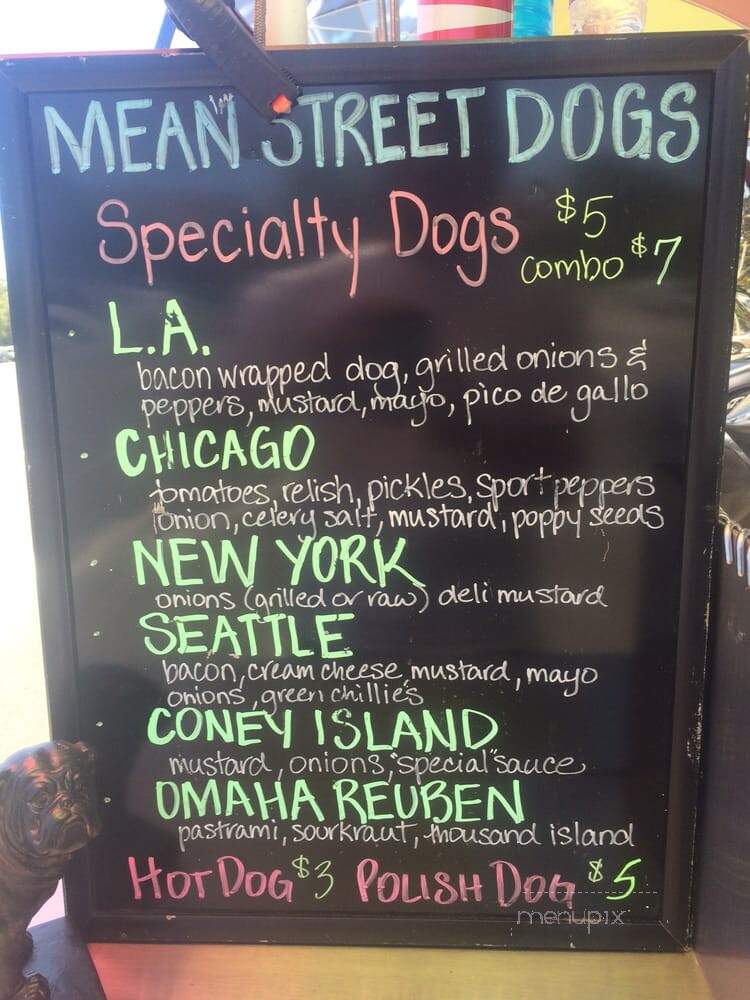 MEAN STREET DOGS
Specialty Dogs $5
combo $7
L.A.
bacon wrapped dog, grilled onions &
peppers, mustard, mayo, pico de gallo
CHICAGO
tomatoes, relish, pickles, sport peppers
onion, celery salt, mustard, poppy seeds
NEW YORK
onions (grilled or raw) deli mustard
SEATTLE
bacon, cream cheese, mustard, mayo
onions, green chillies
CONEY ISLAND
mustard, onions, "special" sauce
OMAHA REUBEN
pastrami, sourkraut, thousand island
HOT DOG $3 POLISH DOG $5
menupix